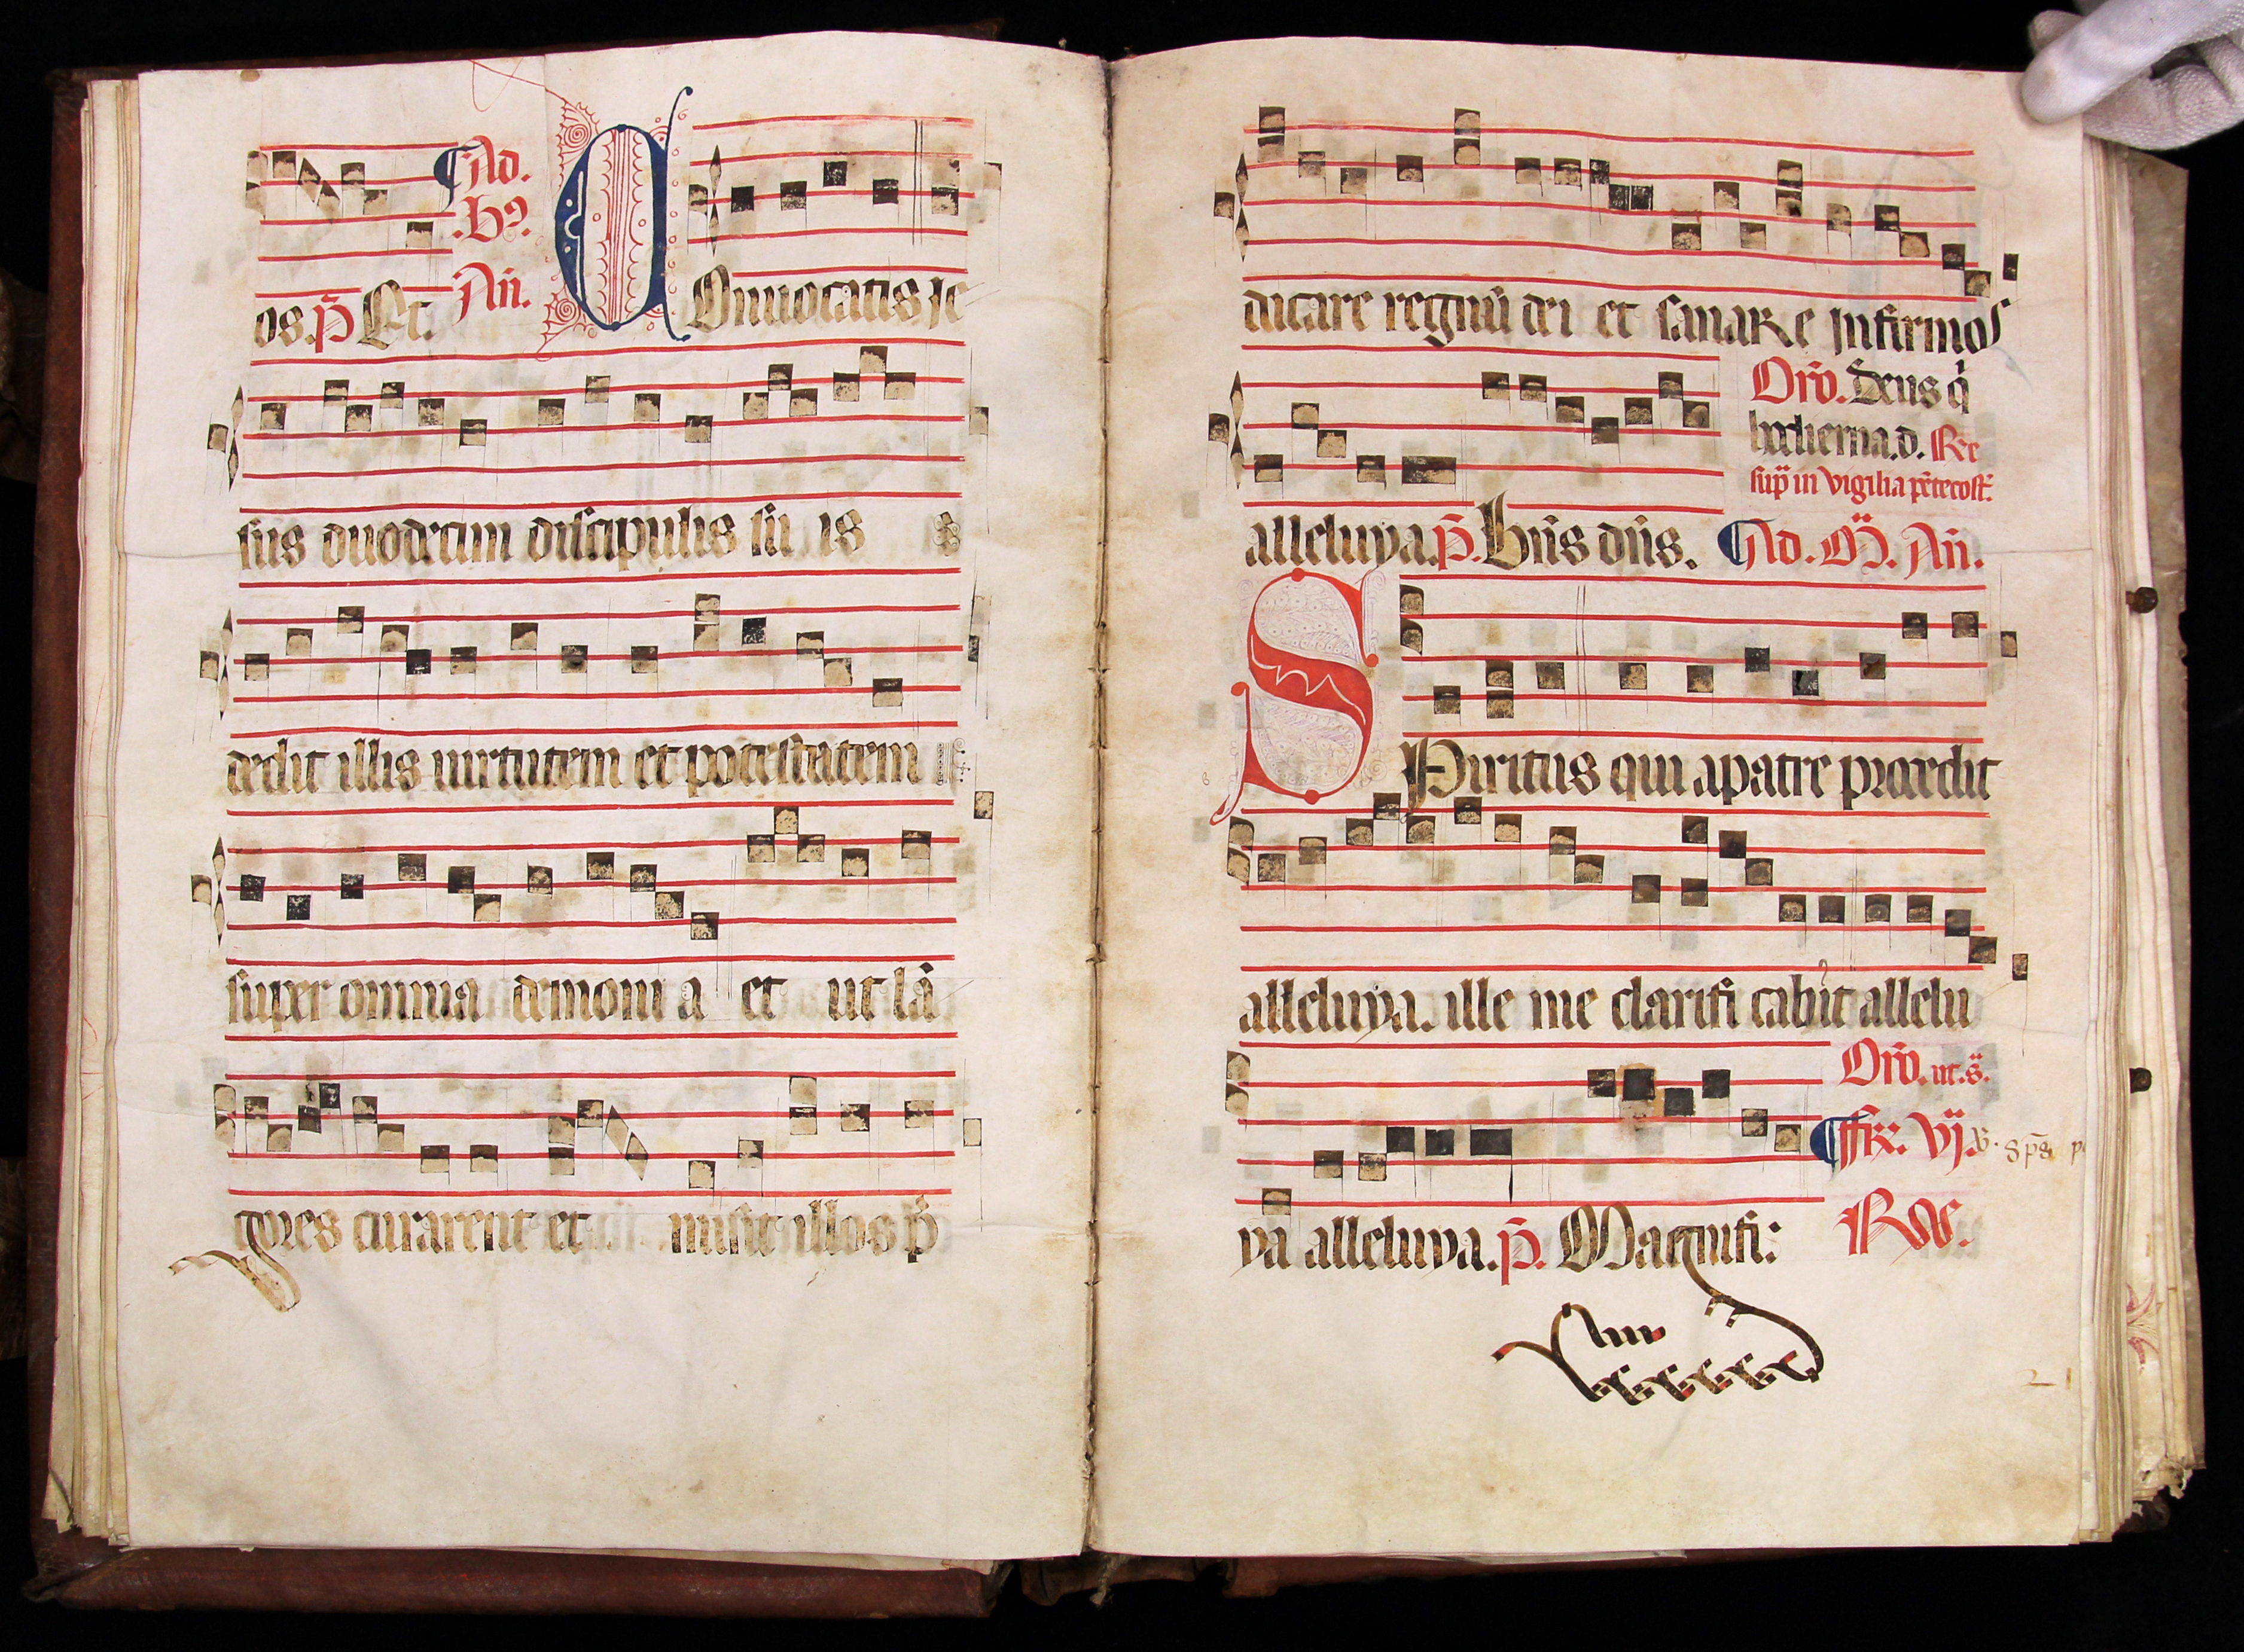 ¶Ad.
.Bn̄.
os. p̄ Et. An̄.
COnuocatis Je
sus duodecim discipulis su is
dedit illis uirtutem et potestatem
super omnia demoni a et ut lā
gores curarent et misit illos p̄
dicare regnū dei et sanare Jnfirmos
Oro̅. Deus q̄
hodierna.d. Re
sup̄ in vigilia pētecost.
alleluya. p̄. Bn̄s dn̄s. ¶Ad. M̄. An̄.
SPiritus qui apatre procedit
alleluya. ille me clarifi cabit allelu
Oro̅. ut.s̄.
¶ffr. Vj.
ya alleluya. p̄. Magnifi: